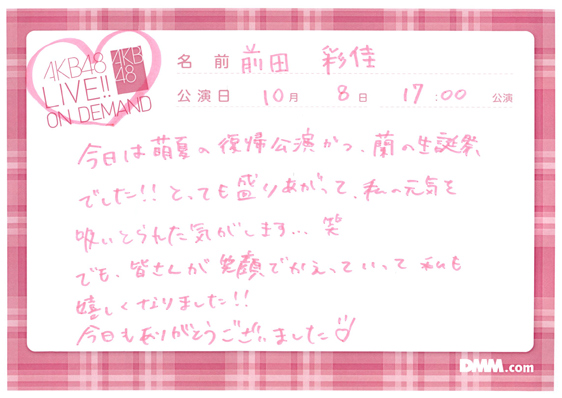 AKB48
LIVE!!
ON DEMAND
AKB
48
名 前 前田 彩佳
公演日 10月 8日 17:00 公演
今日は萌夏の復帰公演かつ、蘭の生誕祭
でした!! とっても盛りあがって、私の元気を
吸いとられた気がします... 笑
でも、皆さんが笑顔でかえっていって 私も
嬉しくなりました!!
今日もありがとうございました♡
DMM.com